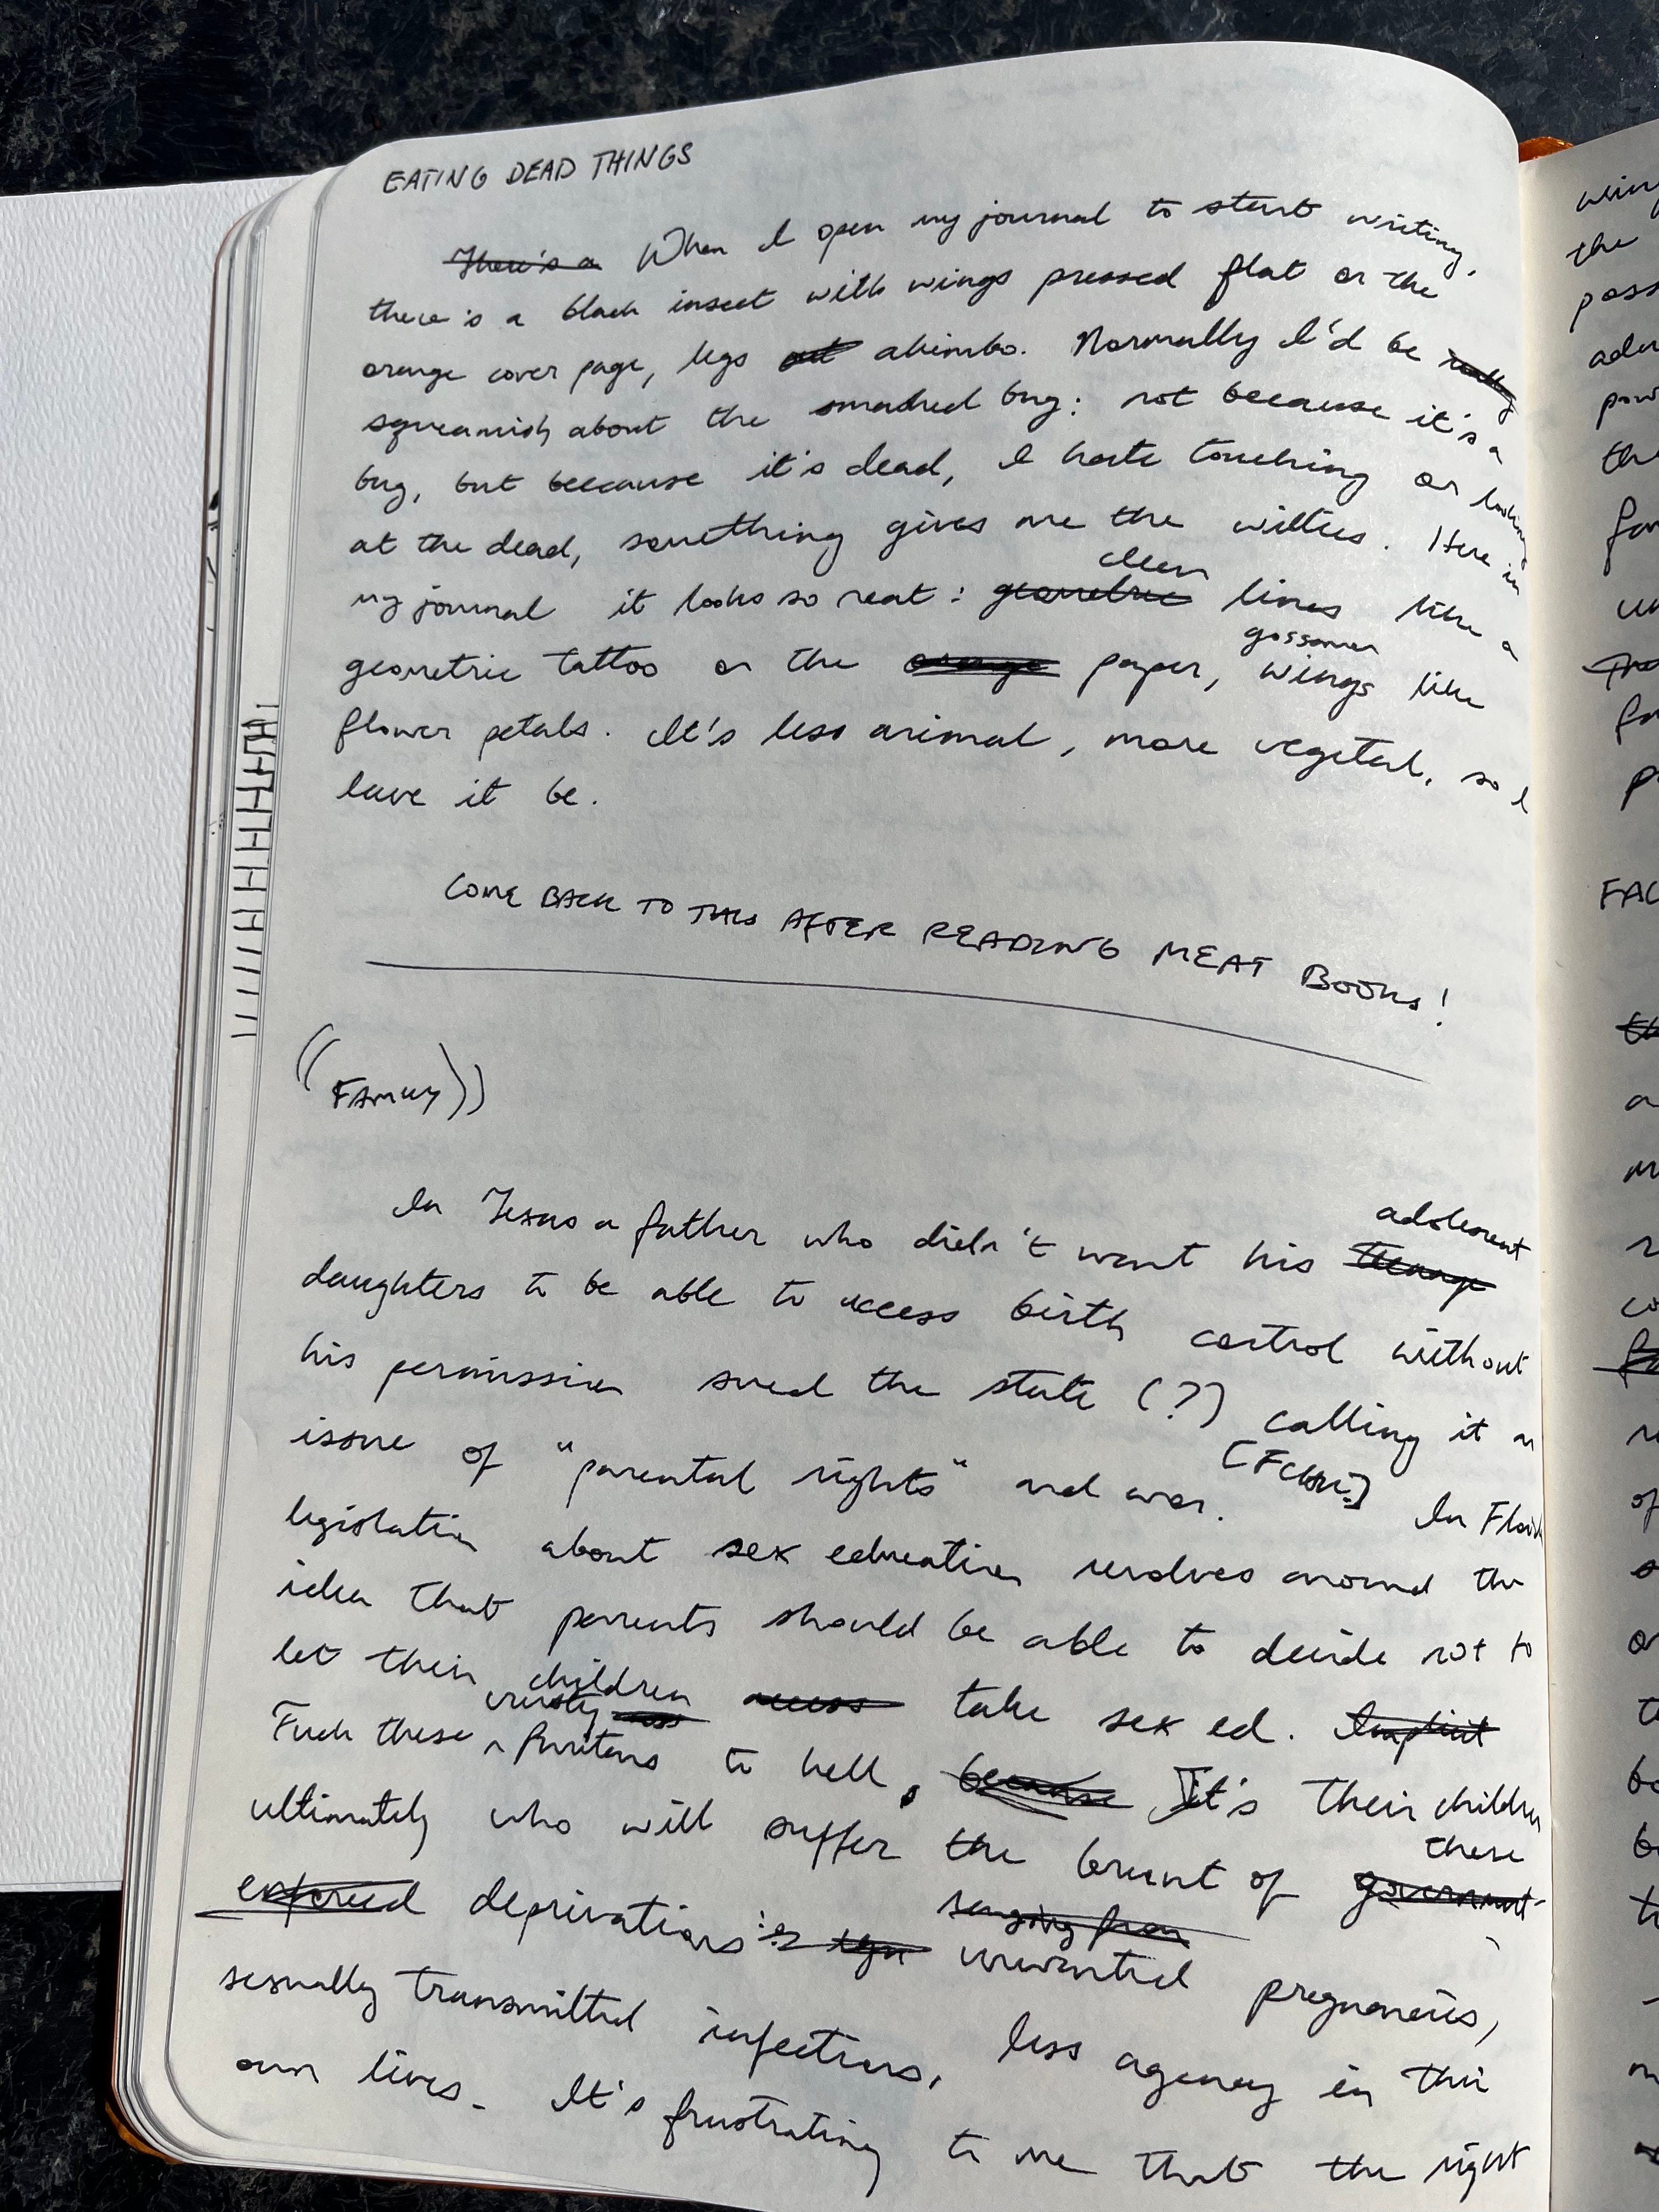 EATING DEAD THINGS
There's a When I open my journal to start writing,
there's a black insect with wings pressed flat on the
orange cover page, legs out akimbo. Normally I'd be really
squeamish about the smashed bug: not because it's a
bug, but because it's dead, I hate touching or looking
at the dead, something gives me the willies. Here in
clean
my journal it looks so neat: geometric lines like a
gossamer
geometric tattoo on the orange paper, wings like
flower petals. It's less animal, more vegetal, so I
leave it be.
COME BACK TO THIS AFTER READING MEAT BOOKS!
((FAMILY))
adolescent
In Texas a father who didn't want his teenage
daughters to be able to access birth control without
his permission sued the state (?) calling it an
issue of "parental rights" and won. In Florida
legislation about sex education revolves around the
idea that parents should be able to decide not to
let their children access take sex ed. Implicit
crusty
Fuck these ^ Puritans to hell, because It's their children
these
ultimately who will suffer the brunt of government
enforced deprivations: unwanted pregnancies,
sexually transmitted infections, less agency in their
own lives. It's frustrating to me that the right
wing
the
FAC